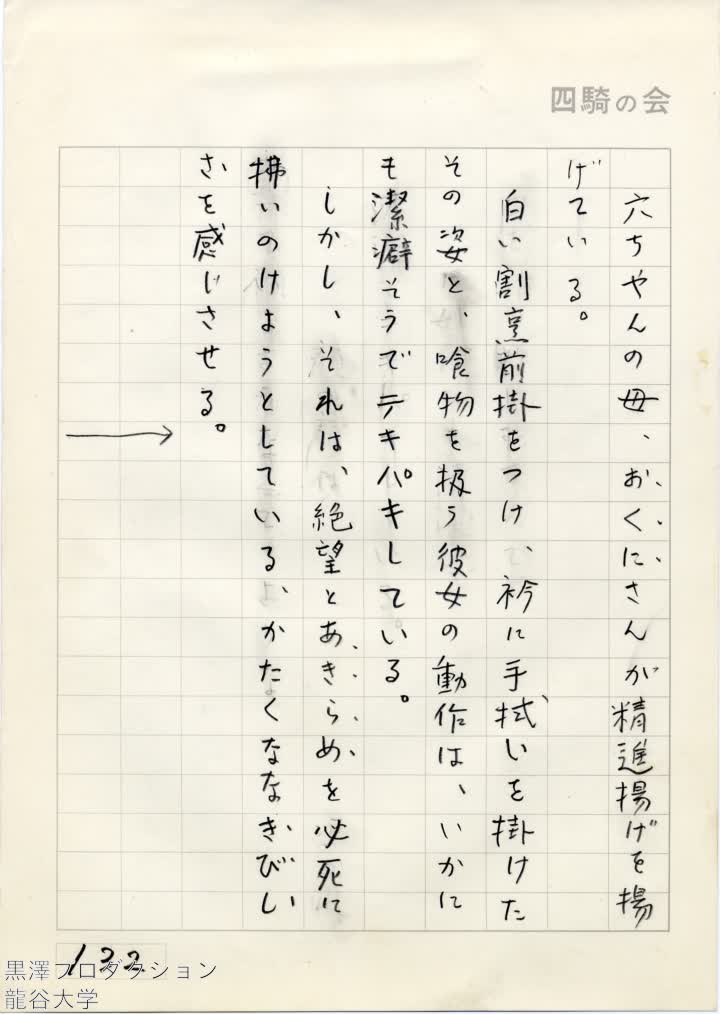 四騎の会
六ちやんの母、おくにさんが精進揚げを揚
げている。
白い割烹前掛をつけ、衿に手拭いを掛けた
その姿と、喰物を扱う彼女の動作は、いかに
も潔癖そうでテキパキしている。
しかし、それは、絶望とあきらめを必死に
拂いのけようとしている、かたくななきびし
さを感じさせる。
122
黒澤プロダクション
龍谷大学